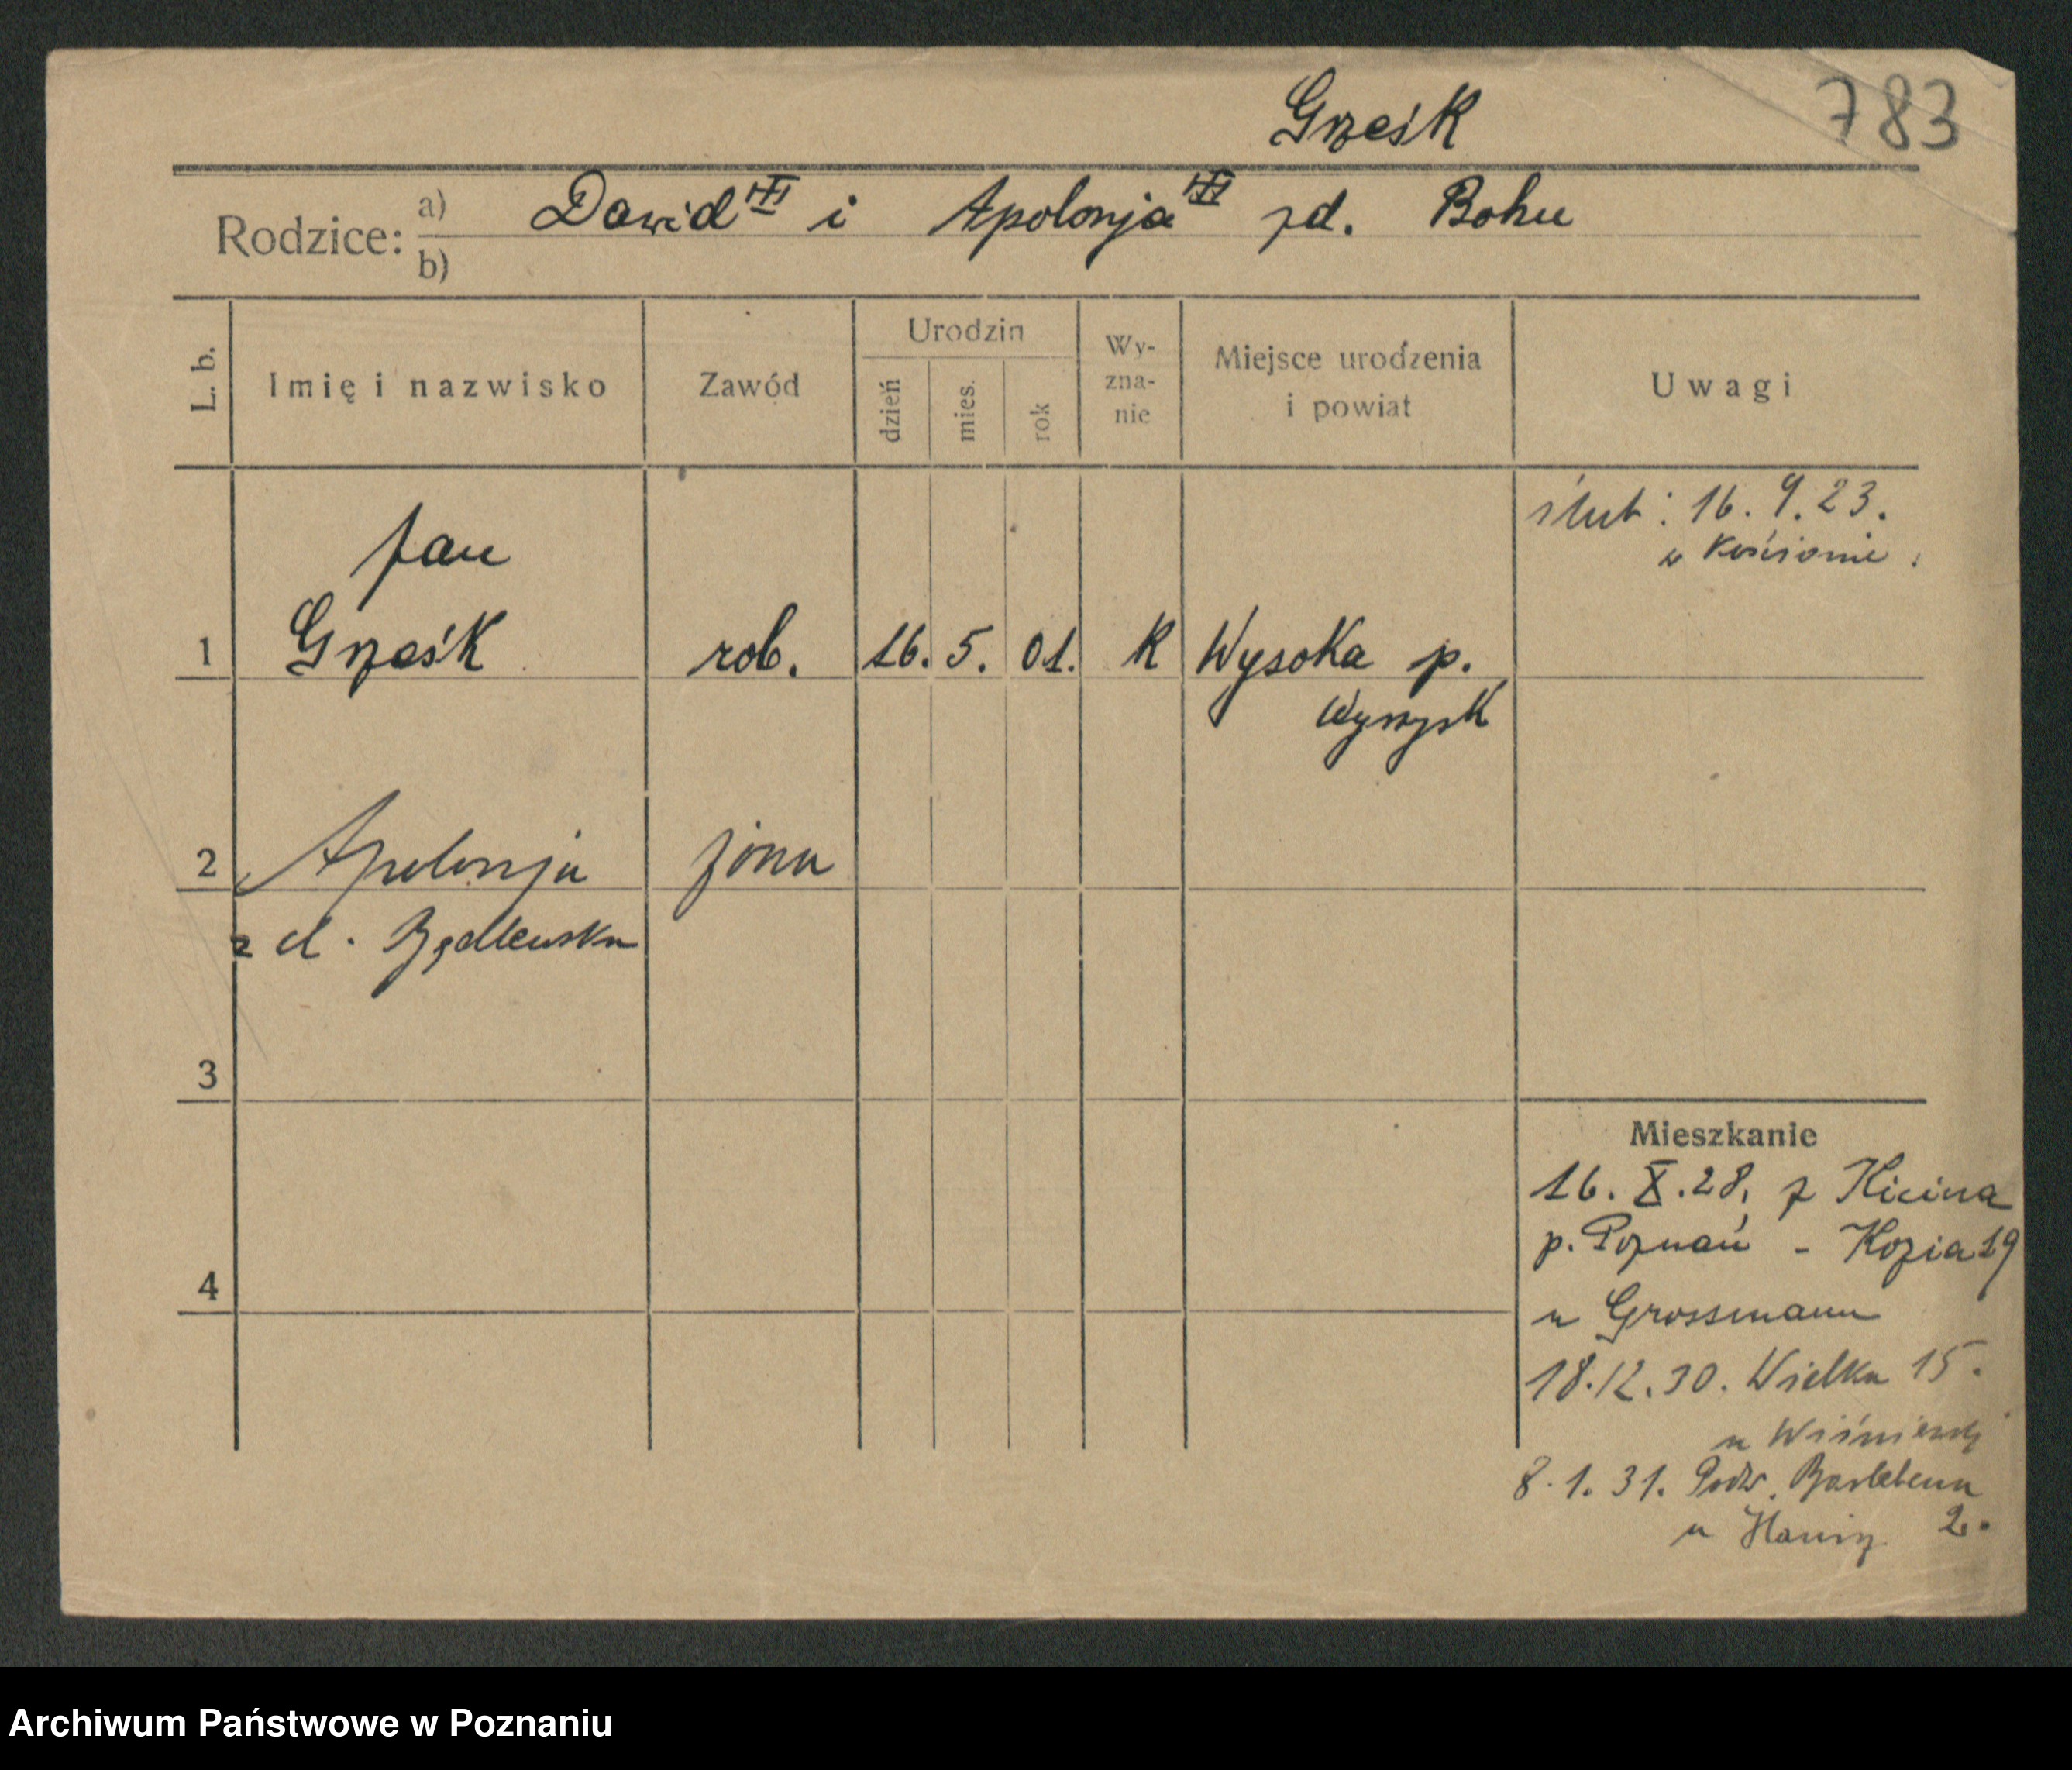 Grześk
783
Rodzice: a) Dawid i Apolonja zd. Bohn
b)
L. b.
Imię i nazwisko
Zawód
Urodzin
dzień
mies.
rok
Wy-
zna-
nie
Miejsce urodzenia
i powiat
Uwagi
ślub: 16. 9. 23.
w Kościanie.
Jan
1 Grześk rob. 16. 5. 01. K Wysoka p.
Wyrzysk
2 Apolonja żona
z d. Będlewska
3
Mieszkanie
16. X. 28, z Kicina
p. Poznań - Kozia 19
4
u Grossmann
18.12.30. Wielka 15.
u
8. 1. 31. Podw.
u 2.
Archiwum Państwowe w Poznaniu